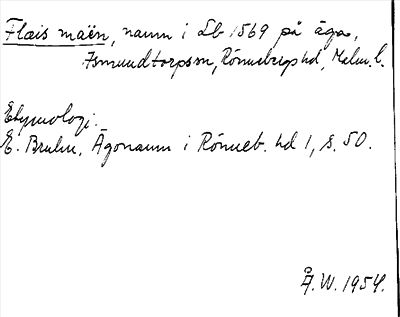 Flais maën, namn i Lb 1569 på äga,
Asmundtorps sn, Rönnebergs hd, Malm. l.
Etymologi:
E. Bruhn, Ägonamn i Rönneb. hd 1, s. 50.
Å.W. 1954.